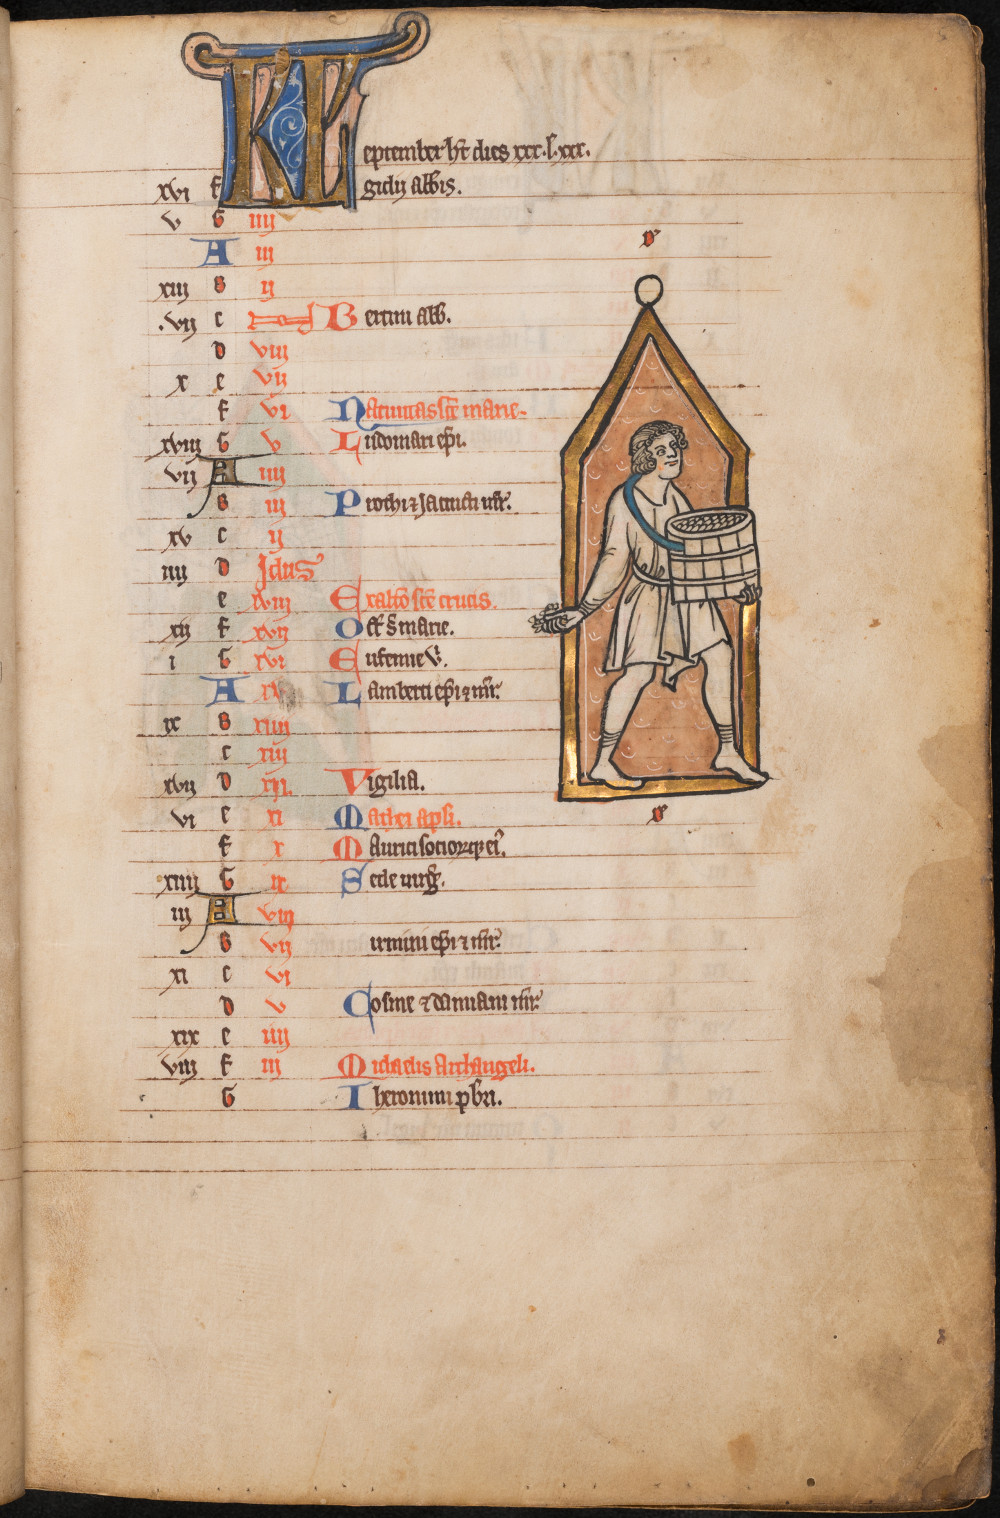 KL eptember ht dies xxx. l. xxx.
xvi f gidij abbis.
v G iiij
A iij
xiij B ij
.vij c B ertini abb.
D viij
x e vij
f vi Natiuitas sce marie.
xviij G v L udomari epi.
vij A iiij
B iij P rothi ⁊ Jacincti mr.
xv c ij
iiij D Jdus
e xviij E xaltõ sce crucis.
xij f xvij O ct̃ S marie.
i G xvi E ufemie v̾.
A xv L amberti epi ⁊ mr.
ix B xiiij
c xiij
xvij D xij. V igilia.
vi e xi M athei apli.
f x M auricii sociorq; ei.
xiiij G ix T ecle uirg.
iij A viij
B vij irmini epi ⁊ mr.
xi c vi
D v C osme ⁊ damiani mr.
xix e iiij
viij f iij M ichaelis Archangeli.
G I heronimi pbri.